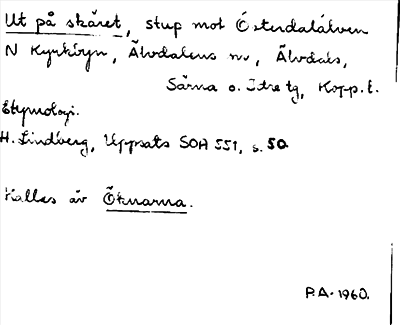 Ut på skäret, stup mot Österdalälven
N Kyrkbyn, Älvdalens sn, Älvdals,
Särna o. Idre tg, Kopp. l.
Etymologi.
H. Lindberg, Uppsats SOA 551, s. 50
Kallas äv Öknarna.
P.A. 1960.